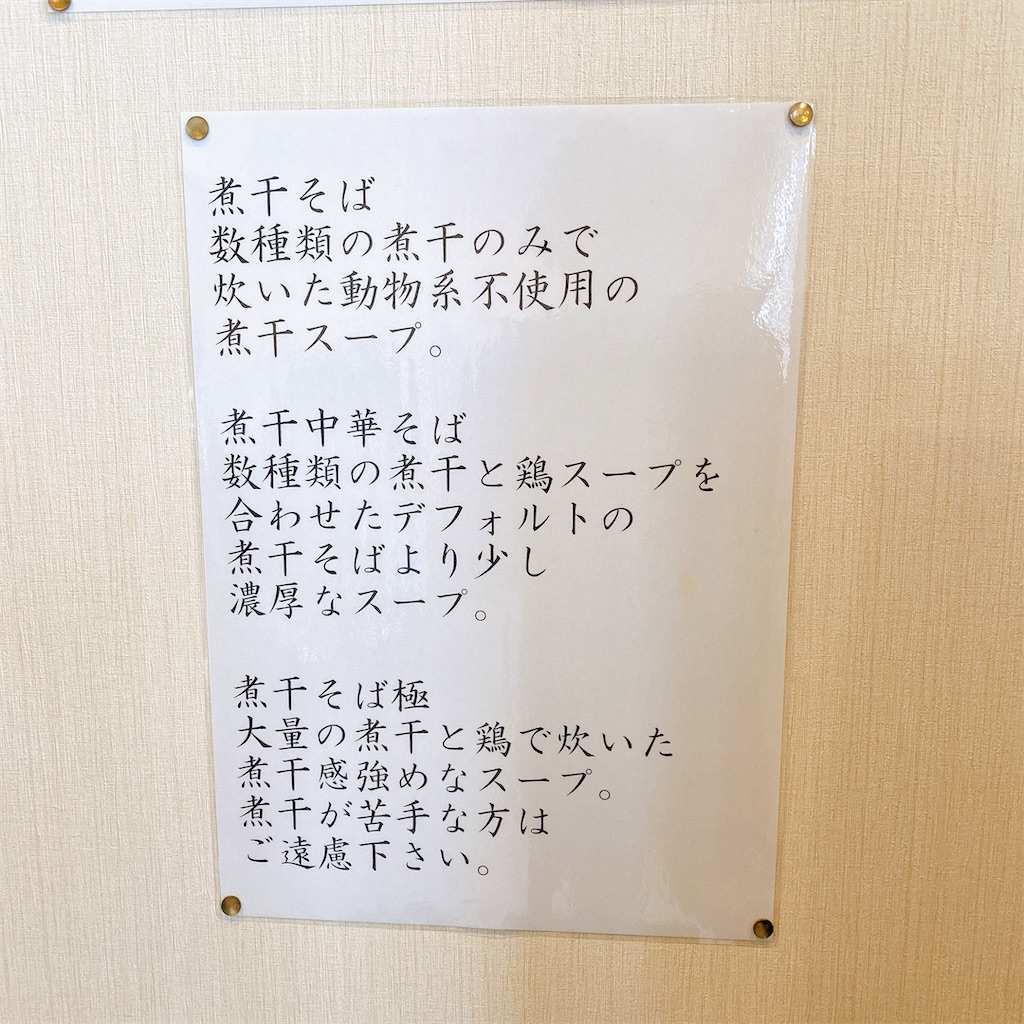 煮干そば
数種類の煮干のみで
炊いた動物系不使用の
煮干スープ。
煮干中華そば
数種類の煮干と鶏スープを
合わせたデフォルトの
煮干そばより少し
濃厚なスープ。
煮干そば極
大量の煮干と鶏で炊いた
煮干感強めなスープ。
煮干が苦手な方は
ご遠慮下さい。